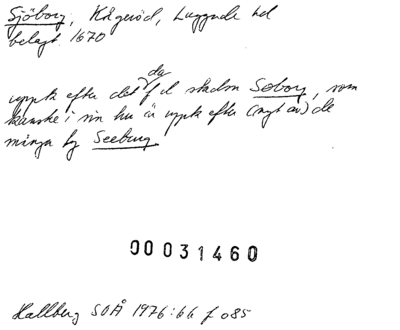 Sjöborg, Kågeröd, Luggude hd
belagt 1670
da
uppk efter det f d staden Søborg, som
kanske i sin tur är uppk efter (nyt av) de
många by Seeburg
00031460
Hallberg SOÅ 1976:66 f 085